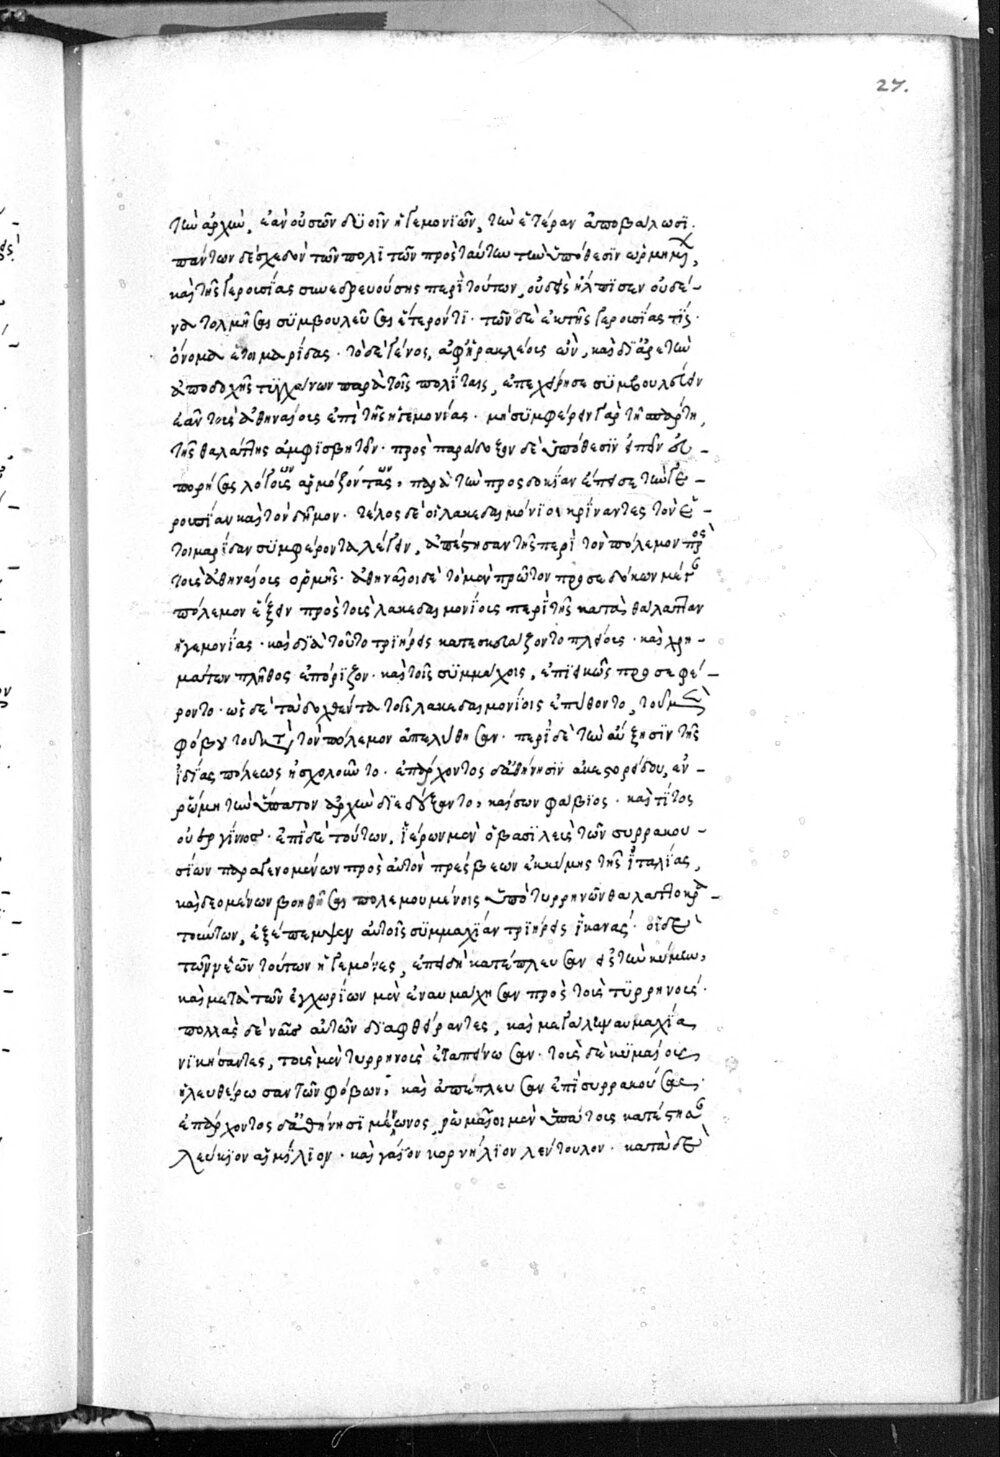 27.
τὴν ἀρχὴν, ἐὰν οὐσῶν δυοῖν ἡγεμονιῶν, τὴν ἑτέραν ἀποβάλωσι.
πάντων δὲ σχεδὸν τῶν πολιτῶν πρὸς ταύτην τὴν ὑπόθεσιν ὡρμημένων,
καὶ τῆς γερουσίας συνεδρευούσης περὶ τούτων, οὐδεὶς ἤλπισεν οὐδέ-
να τολμῆσαι συμβουλεῦσαι ἕτερόν τι. τῶν δὲ ἐκ τῆς γερουσίας τίς.
ὄνομα ἑτοιμαρίδας. τὸ δὲ γένος, ἀφ' ἡρακλέους ὢν, καὶ δι' ἀρετὴν
ἀποδοχῆς τυγχάνων παρὰ τοῖς πολίταις, ἐπεχείρησε συμβουλεύειν
ἐᾶν τοὺς ἀθηναίους ἐπὶ τῆς ἡγεμονίας. μὴ συμφέρειν γὰρ τῇ σπάρτῃ,
τῆς θαλάττης ἀμφισβητεῖν. πρὸς παράδοξον δὲ ὑπόθεσιν εἰπεῖν εὐ-
πορήσας λόγους ἁρμόζοντας, παρὰ τὴν προσδοκίαν ἔπεισε τὴν γε-
ρουσίαν καὶ τὸν δῆμον. τέλος δὲ οἱ λακεδαιμόνιοι κρίναντες τὸν ἑ-
τοιμαρίδαν συμφέροντα λέγειν, ἀπέστησαν τῆς περὶ τὸν πόλεμον πρὸς
τοὺς ἀθηναίους ὁρμῆς. ἀθηναῖοι δὲ τὸ μὲν πρῶτον προσεδόκων μέγαν
πόλεμον ἕξειν πρὸς τοὺς λακεδαιμονίους περὶ τῆς κατὰ θάλατταν
ἡγεμονίας. καὶ διὰ τοῦτο τριήρεις κατεσκευάζοντο πλείους. καὶ χρη-
μάτων πλῆθος ἐπόριζον. καὶ τοῖς συμμάχοις, ἐπιεικῶς προσεφέ-
ροντο. ὡς δὲ τὰ δοχθέντα τοῖς λακεδαιμονίοις ἐπύθοντο, τοῦ μὲν
φόβου τοῦ κατὰ τὸν πόλεμον ἀπελύθησαν. περὶ δὲ τὴν αὔξησιν τῆς
ἰδίας πόλεως ἠσχολοῦντο. ἐπ' ἄρχοντος δ' ἀθήνησιν ἀκεστορίδου, ἐν
ῥώμῃ τὴν ὕπατον ἀρχὴν διεδέξαντο, καίσων φάβιος. καὶ τίτος
οὐεργίνιος. ἐπὶ δὲ τούτων, ἱέρων μὲν ὁ βασιλεὺς τῶν συρρακου-
σίων παραγενομένων πρὸς αὐτὸν πρέσβεων ἐκ κύμης τῆς ἰταλίας,
καὶ δεομένων βοηθῆσαι πολεμουμένοις ὑπὸ τυρρηνῶν θαλαττοκρα-
τούντων, ἐξέπεμψεν αὐτοῖς συμμαχίαν τριήρεις ἱκανάς. οἱ δὲ
τῶν νεῶν τούτων ἡγεμόνες, ἐπειδὴ κατέπλευσαν εἰς τὴν κύμην,
καὶ μετὰ τῶν ἐγχωρίων μὲν ἐναυμάχησαν πρὸς τοὺς τυρρηνούς.
πολλὰς δὲ ναῦς αὐτῶν διαφθείραντες, καὶ μεγάλῃ ναυμαχίᾳ
νικήσαντες, τοὺς μὲν τυρρηνοὺς ἐταπείνωσαν. τοὺς δὲ κυμαίους
ἠλευθέρωσαν τῶν φόβων, καὶ ἀπέπλευσαν ἐπὶ συρρακούσας.
ἐπ' ἄρχοντος δ' ἀθήνησι μένωνος, ῥωμαῖοι μὲν ὑπάτους κατέστησαν
λεύκιον αἰμίλιον. καὶ γάϊον κορνήλιον λέντουλον. κατὰ δὲ